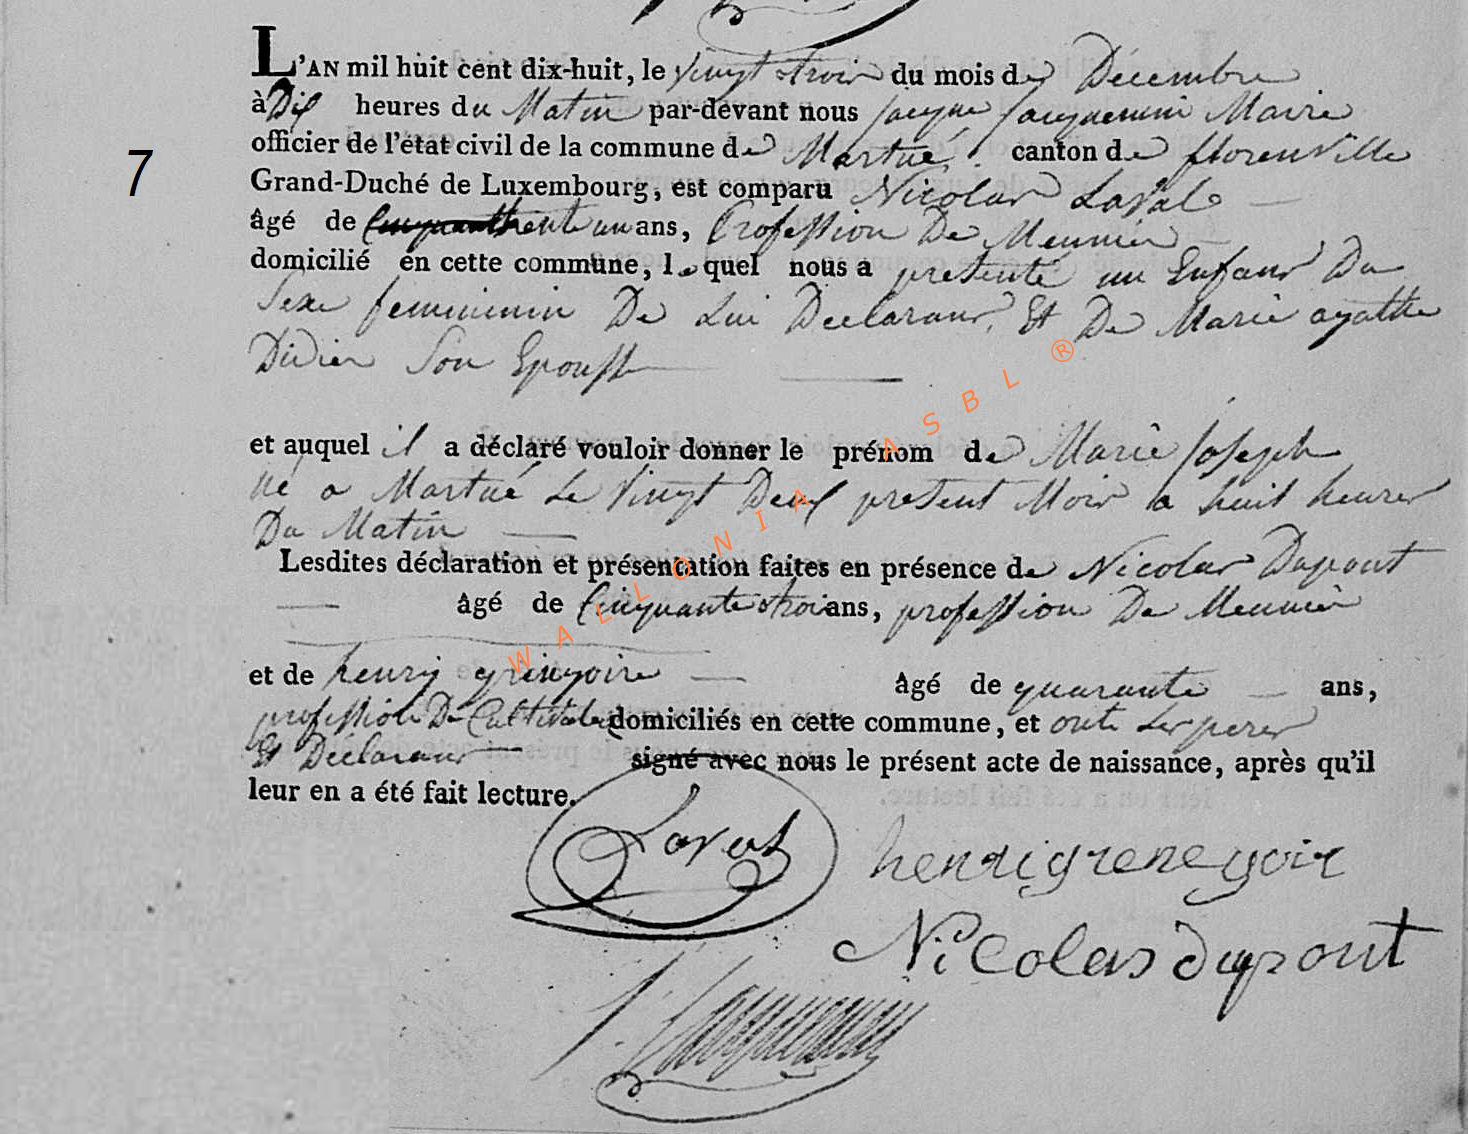 L'AN mil huit cent dix-huit, le vingt trois du mois de Décembre
à Dix heures du Matin par-devant nous jacque jacquemin Maire
7
officier de l'état civil de la commune de Martué. canton de florenville
Grand-Duché de Luxembourg, est comparu Nicolas Laval
âgé de trente un ans, Profession De Meunier
domicilié en cette commune, lequel nous a presenté un Enfant Du
Sexe feminin De Lui Declarant, Et De Marie agathe
Didier Son Epouse
et auquel il a déclaré vouloir donner le prénom de Marie Joseph
né a Martué Le Vingt Deux present Mois a huit heures
Du Matin
Lesdites déclaration et présentation faites en présence de Nicolas Dupont
âgé de Cinquante trois ans, profession De Meunier
et de henry gringoire âgé de quarante ans,
profession De Cultivateur domiciliés en cette commune, et ont Les peres
Et Déclarant signé avec nous le présent acte de naissance, après qu'il
leur en a été fait lecture.
Laval
henri grenegoir
Nicolas dupont
J. Jacquemin
WALLONIA ASBL ®